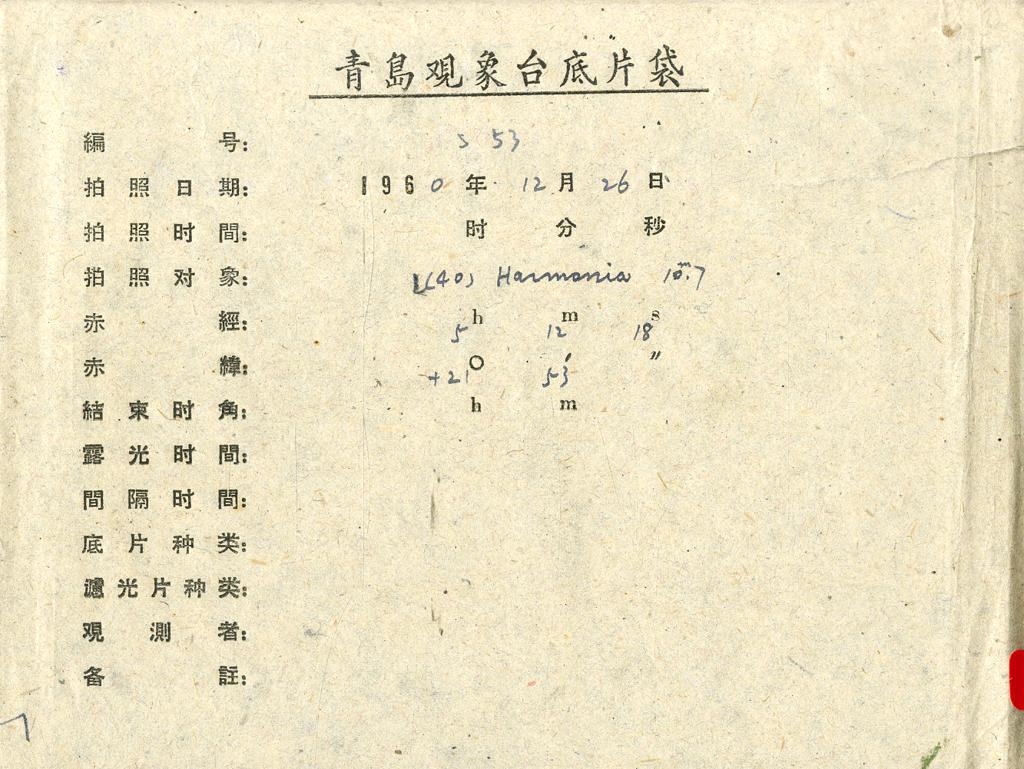 青島观象台底片袋
編号: s 53
拍照日期: 1960年 12月 26日
拍照时間: 时 分 秒
拍照对象: (40) Harmonia 10.ᵐ7
赤經: 5h 12m 18s
赤緯: +21° 53′ ″
結束时角: h m
露光时間:
間隔时間:
底片种类:
濾光片种类:
观測者:
备註: